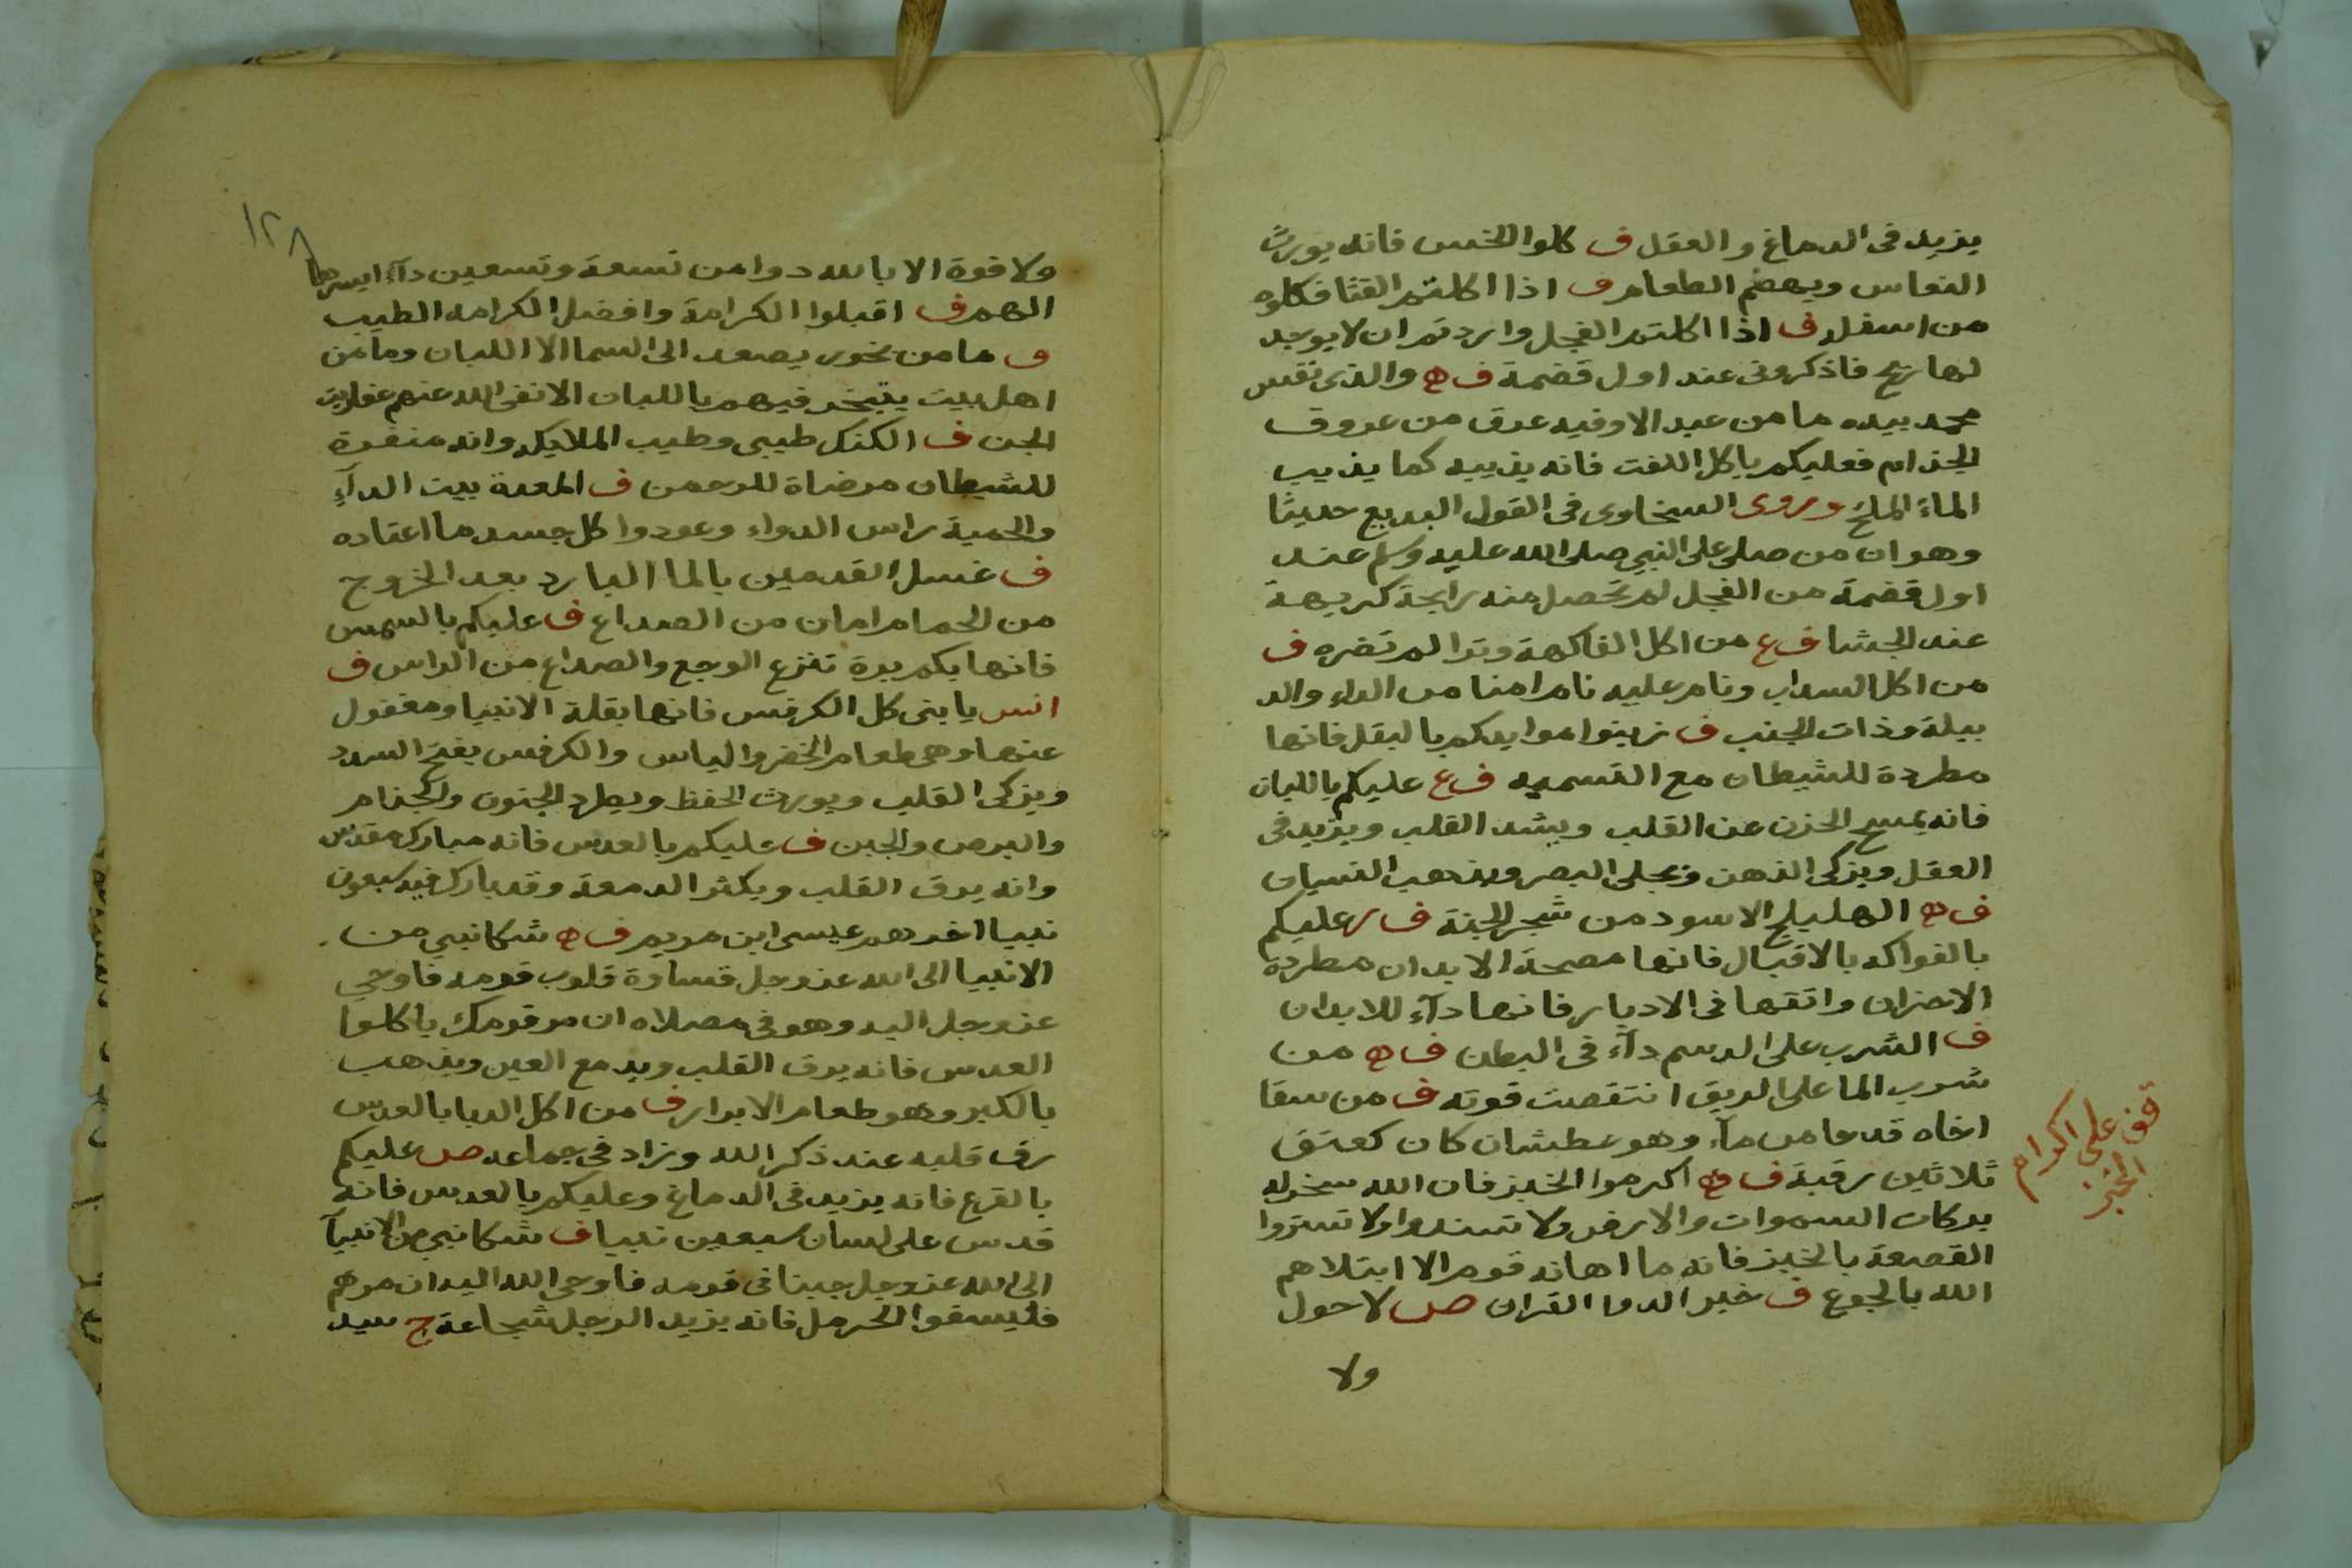 يزيد فى الدماغ والعقل ف كلوا الخس فانه يورث
النعاس ويهضم الطعام ف اذا اكلتم القثا فكلوه
من اسفله ف اذا اكلتم الفجل واردتم ان لا يوجد
لها ريح فاذكرونى عند اول قضمة ف ه والذى نفس
محمد بيده ما من عبد الا وفيه عرق من عروق
الجذام فعليكم باكل اللفت فانه يذيبه كما يذيب
الماءُ الملح وروى السخاوى فى القول البديع حديثا
وهو ان من صلى على النبي صلى الله عليه وسلم عند
اول قضمة من الفجل لم تحصل منه رايحة كريهة
عند الجشا ف ع من اكل الفاكهة وترا لم تضره ف
من اكل السداب ونام عليه نام امنا من الداء والد
بيلة وذات الجنب ف زينوا موايدكم بالبقل فانها
مطردة للشيطان مع التسميه ف ع عليكم باللبان
فانه يمسح الحزن عن القلب ويشد القلب ويزيد فى
العقل ويزكى الذهن ويجلى البصر ويذهب النسيان
ف ه الهليلج الاسود من شجر الجنة ف ر عليكم
بالفواكه بالاقبال فانها مصحة الابدان مطردة
الاحزان واتقها فى الادبار فانها دآء للابدان
ف الشرب على الدسم دآء فى البطن ف ه من
شرب الما على الريق انتقصت قوته ف من سقا
اخاه قدحا من مآء وهو عطشان كان كعتق
ثلاثين رقبة ف ه اكرموا الخبز فان الله سخر له
بركات السموات والارض ولا تسندوا ولا تستروا
القصعة بالخبز فانه ما اهانه قوم الا ابتلاهم
الله بالجوع ف خير الدوا القران ص لا حول
ولا
قف على اكرام
الخبز
١٢٨
ولا قوة الا بالله دوا من تسعة وتسعين دآء ايسرها
الهم ف اقبلوا الكرامة وافضل الكرامه الطيب
ف ما من بخور يصعد الى السما الا اللبان وما من
اهل بيت يتبخر فيهم باللبان الا نفى الله عنهم عفاريت
الجن ف الكندر طيبى وطيب الملايكه وانه منفرة
للشيطان مرضاة للرحمن ف المعدة بيت الدآءِ
والحمية راس الدواء وعودوا كل جسد ما اعتاده
ف غسل القدمين بالما البارد بعد الخروج
من الحمام امان من الصداع ف عليكم بالشمس
فانها بكم برة تنزع الوجع والصداع من الراس ف
انس يا بنى كل الكرفس فانها بقلة الانبيا ومغفول
عنها وهى طعام الخضر والياس والكرفس يفتح السدد
ويزكى القلب ويورث الحفظ ويطرد الجنون والجذام
والبرص والجبن ف عليكم بالعدس فانه مبارك مقدس
وانه يرق القلب ويكثر الدمعة وقد بارك فيه سبعون
نبيا اخرهم عيسى ابن مريم ف ه شكا نبي من
الانبيا الى الله عز وجل قساوة قلوب قومه فاوحى
عز وجل اليه وهو فى مصلاه ان مر قومك ياكلوا
العدس فانه يرق القلب ويدمع العين ويذهب
بالكبر وهو طعام الابرار ف من اكل الدبا بالعدس
رق قلبه عند ذكر الله وزاد فى جماعه ص عليكم
بالقرع فانه يزيد فى الدماغ وعليكم بالعدس فانه
قدس على لسان سبعين نبيا ف شكا نبي من الانبيآ
الى الله عز وجل جبنا فى قومه فاوحى الله اليه ان مرهم
فليسقوا الحرمل فانه يزيد الرجل شجاعة ج سيد